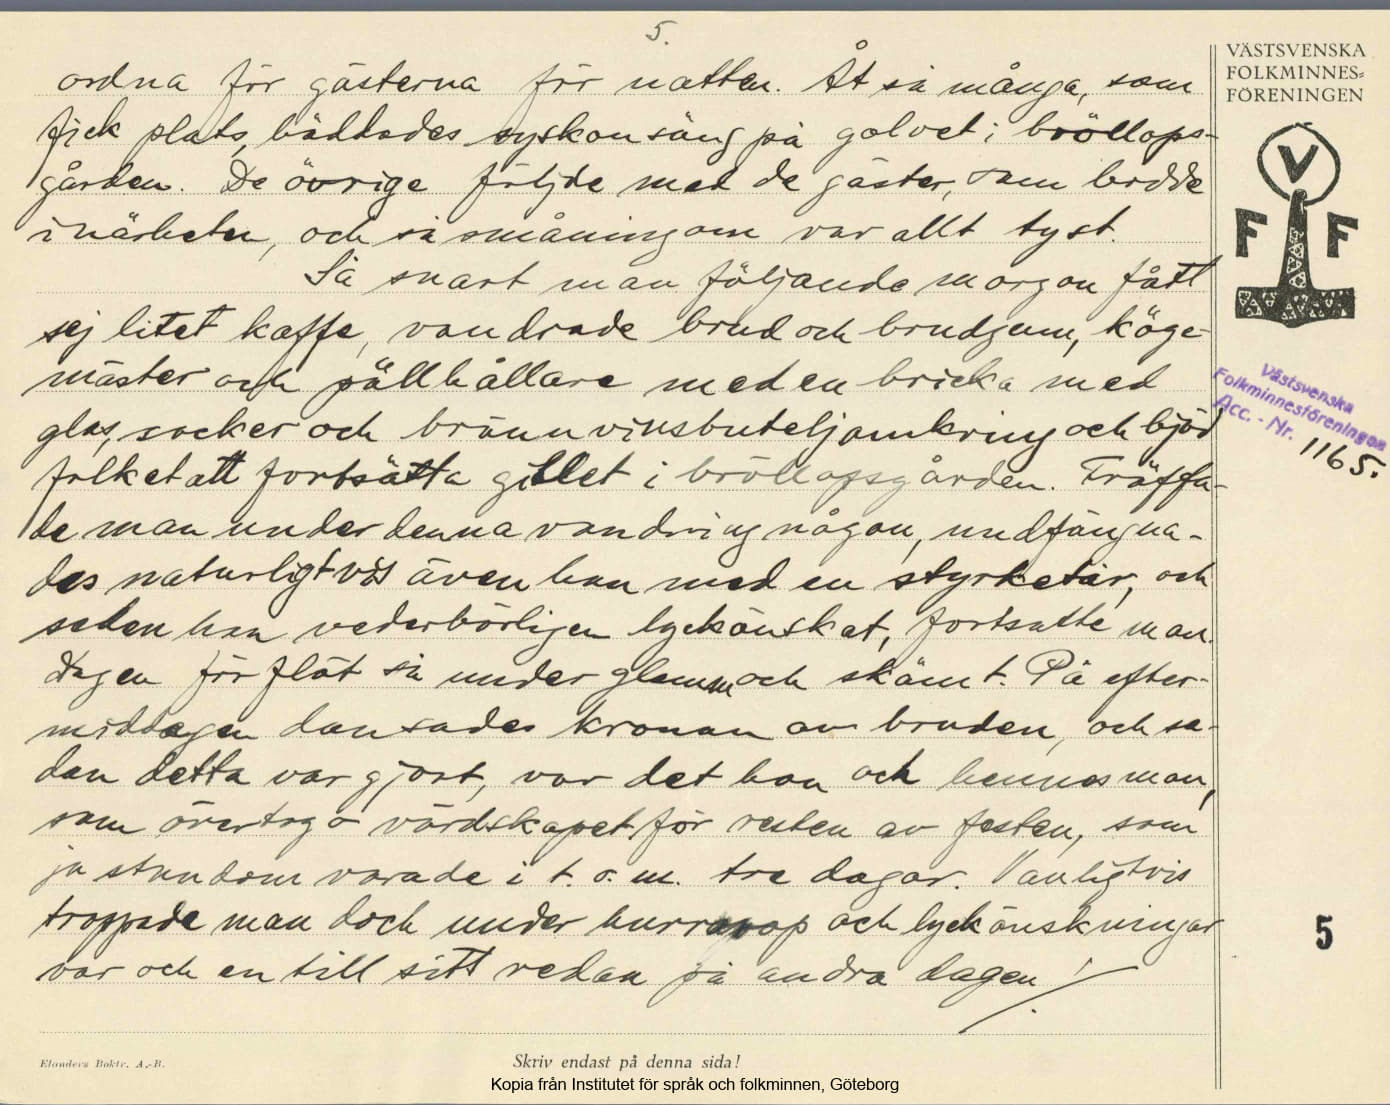 5.
ordna för gästerna för natten. Åt så många, som
fick plats, bäddades syskonsäng på golvet i bröllops-
gården. De övrige följde med de gäster, som bodde
i närheten, och så småningom var allt tyst.
Så snart man följande morgon fått
sej litet kaffe, vandrade brud och brudgum, köge-
mäster och pällhållare med en bricka med
glas, socker och brännvinsbuteljomkring och bjöd
folket att fortsätta gillet i bröllopsgården. Träffa-
de man under denna vandring någon, undfägna-
des naturligtvis även han med en styrketår, och
sedan han vederbörligen lyckönskat, fortsatte man.
Dagen förflöt så under glamm och skämt. På efter-
middagen dansades kronan av bruden, och se-
dan detta var gjort, var det hon och hennes man,
som övertogo värdskapet för resten av festen, som
ju stundom varade i t. o. m. tre dagar. Vanligtvis
troppade man dock under hurrarop och lyckönskningar
var och en till sitt redan på andra dagen!
VÄSTSVENSKA
FOLKMINNES-
FÖRENINGEN
V
F F
Västsvenska
Folkminnesföreningen
Acc. - Nr. 1165.
5
Elanders Boktr. A.-B.
Skriv endast på denna sida!
Kopia från Institutet för språk och folkminnen, Göteborg